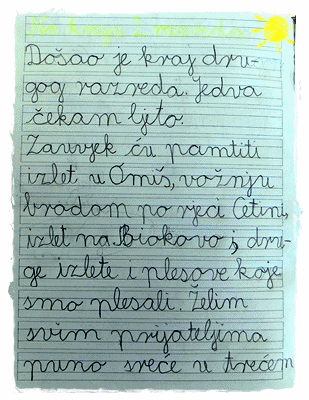 Na kraju 2. razreda
Došao je kraj dru-
gog razreda. Jedva
čekam ljeto.
Zauvjek ću pamtiti
izlet u Omiš, vožnju
brodom po rjeci Cetini,
izlet na Biokovo i, dru-
ge izlete i plesove koje
smo plesali. Želim
svim prijateljima
puno sreće u trećem